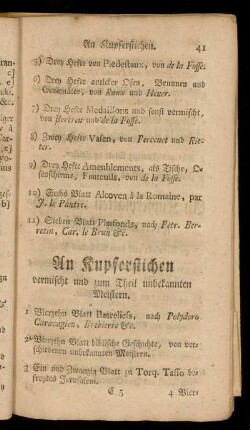 An Kupferstichen. 41
5) Drey Hefte von Piedestaux, von de la Fosse.
6) Drey Hefte antiker Ofen, Brunnen und
Grabmäler, von Roux und Heuer.
7) Drey Hefte Medaillons und sonst vermischt,
von Bertren und de la Fosse.
8) Zwey Hefte Vasen, von Percenet und Rit-
ter.
9) Drey Hefte Ameublements, als Tische, O-
fenschirme, Fauteuils, von de la Fosse.
10) Sechs Blatt Alcoven à la Romaine, par
J. le Pautre.
11) Sieben Blatt Plafonds, nach Petr. Ber-
retin, Car. le Brun &c.
An Kupferstichen
vermischt und zum Theil unbekannten
Meistern.
1 Vierzehn Blatt Basreliefs, nach Polydoro
Caravagien,
2 Vierzehn Blatt biblische Geschichte, von ver-
schiedenen unbekannten Meistern.
3 Ein und Zwanzig Blatt zu Torq. Tasso be-
freytes Jerusalem.
C 5 4 Vier-